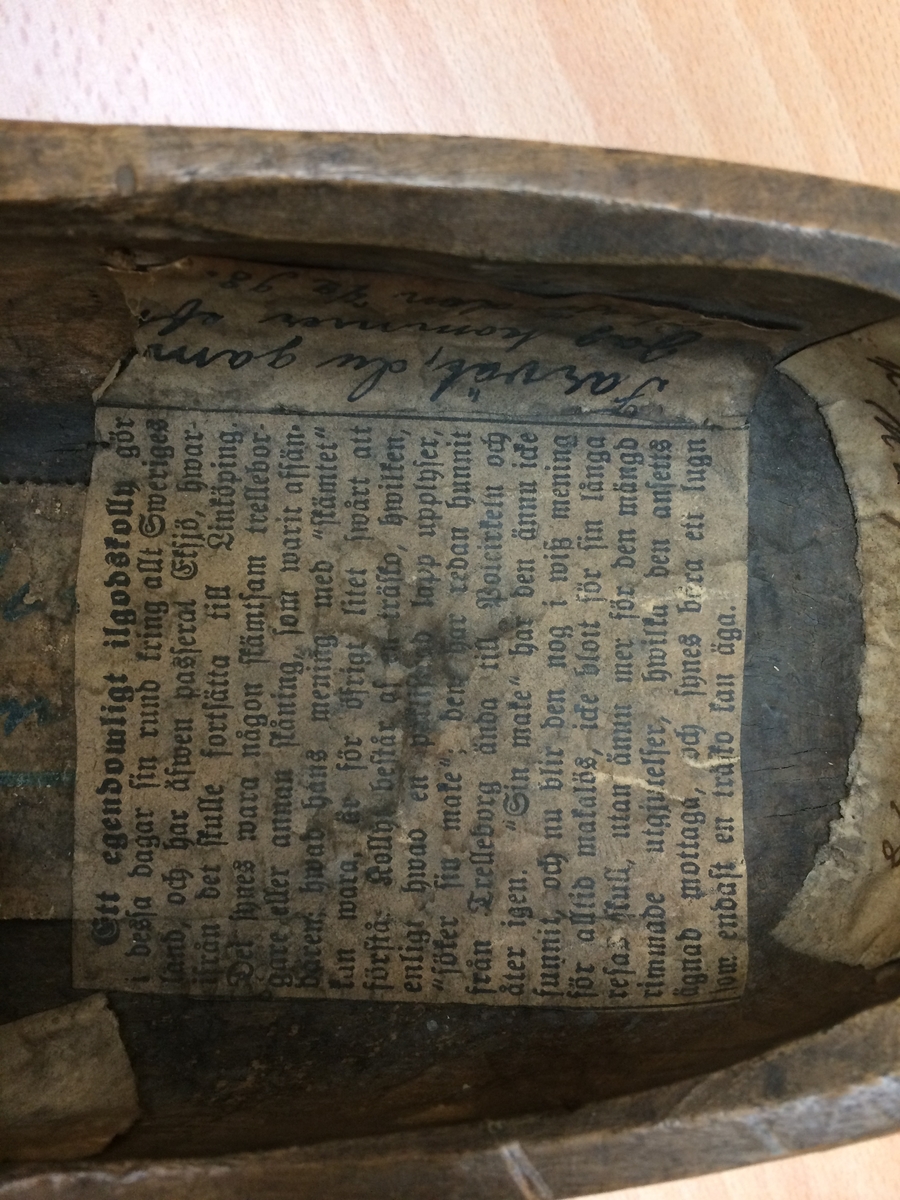 Ett egendomligt ilgodskolly gör
i dessa dagar sin rund kring allt Sweriges
land, och har äfwen passerat Eksjö, hwar-
ifrån det skulle fortsätta till Linköping.
Det synes wara någon skämtsam trellebor-
gare eller annan skåning, som warit affän-
daren; hwad hans mening med "skämtet"
kan wara, är för öfrigt litet swårt att
förstå. Kollyt består af en träsko, hwilken,
enligt hwad en lapp upplyser,
"söker sin make"; den har redan hunnit
från Trelleborg ända till och
åter igen. "Sin make" har den ännu icke
funnit, och nu blir den nog i wiß mening
för alltid makalös, icke blott för sin långa
resas skull, utan ännu mer för den mängd
rimmade utgjutelser, hwilka den ansetts
ägnad mottaga, och synes bära ett lugn
som endast en träsko kan äga.
Farväl, du gam
Jag kommer
den 7/2 98.